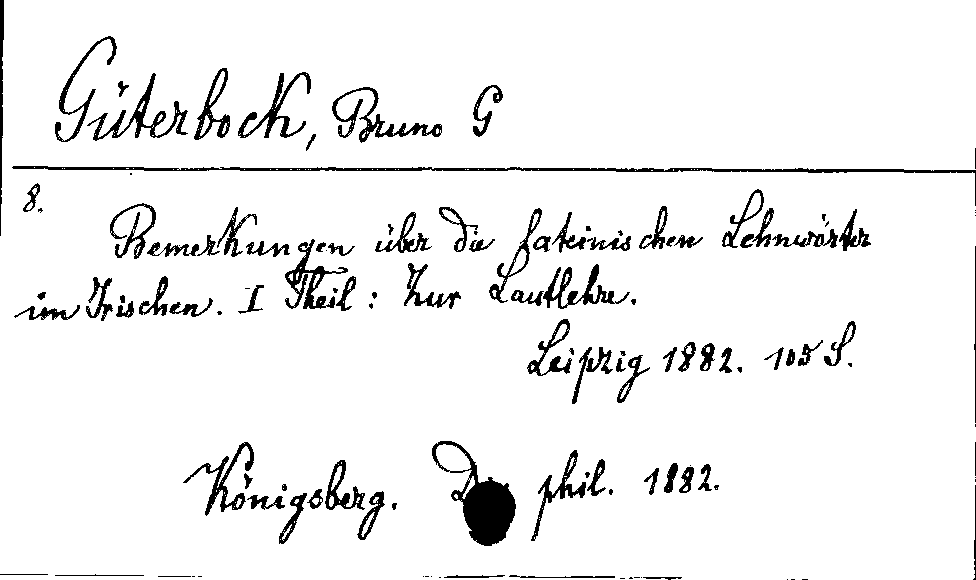 Güterbock, Bruno G
8.
Bemerkungen über die lateinischen Lehnwörter
im Irischen. I Theil: Zur Lautlehre.
Leipzig 1882. 105 S.
Königsberg. phil. 1882.